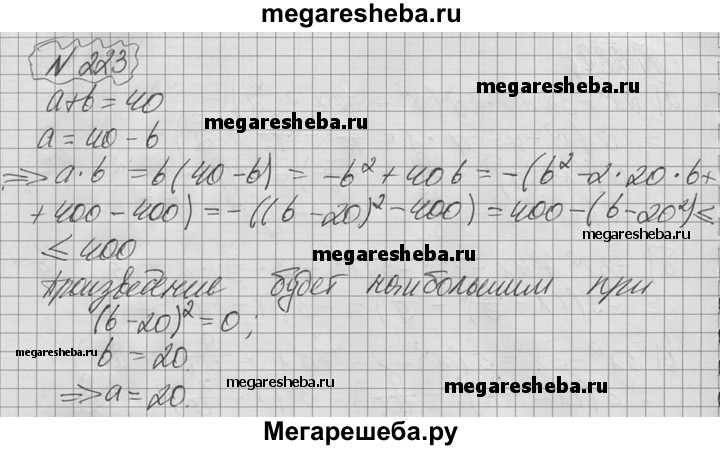 megaresheba.ru
N 223
a+b=40
megaresheba.ru
a=40-b
megaresheba.ru
=> a·b = b(40-b) = -b²+40b = -(b²-2·20·b+
+400-400) = -((b-20)²-400) = 400-(b-20²) ≤
megaresheba.ru
≤ 400
megaresheba.ru
Произведение будет наибольшим при
(b-20)²=0;
megaresheba.ru
b = 20.
megaresheba.ru
megaresheba.ru
=> a=20.
Мегарешеба.ру